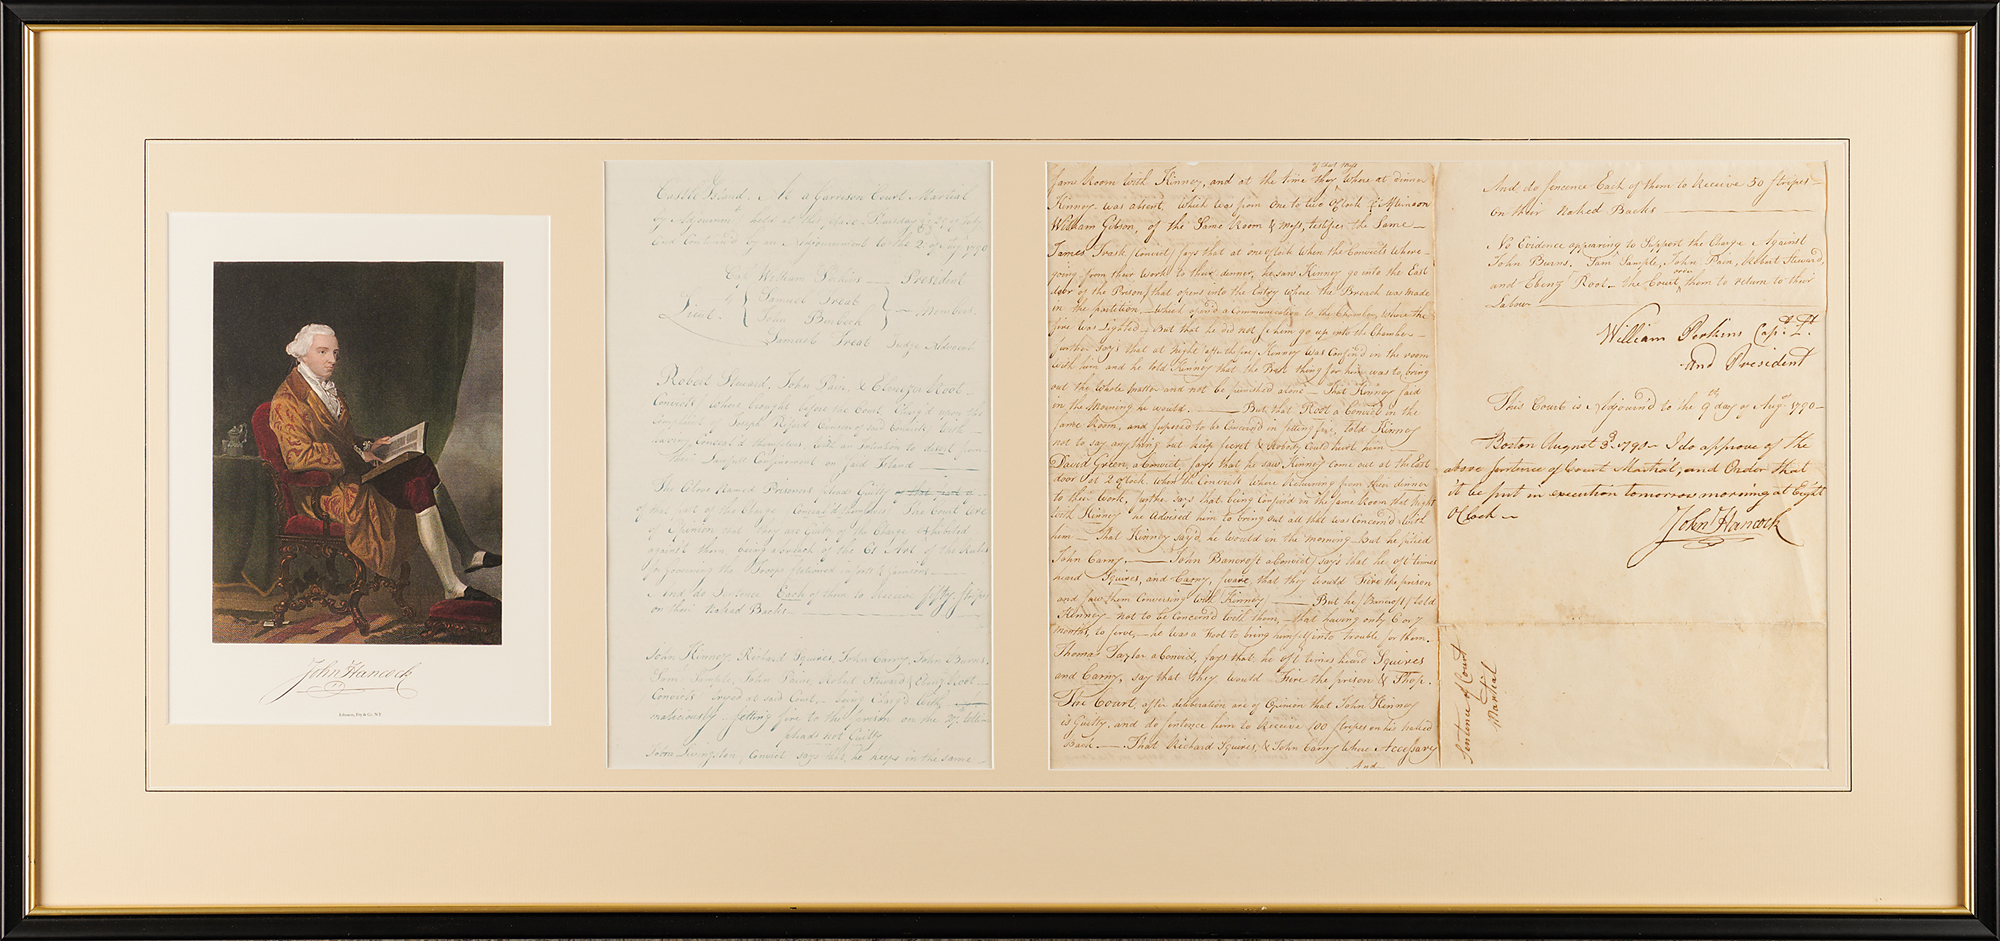 John Hancock
Johnson, Fry & Co. N.Y.
Castle Island. At a Garrison Court Martial
by Adjournmt held at this place Thursday
and Continued by an Adjournment to the 2d of Augt 1790
William Perkins President
Lieut. Samuel Treat
John Burbeck Members
Samuel Treat Judge Advocate
Robert Steward, John Pain, & Ebenezar Root
Convicts / where brought before the Court Charg'd upon the
Complaint of Joseph Overseer of said Convicts with
having Conceal'd themselves, with an intention to desert from
their Lawfull Confinement on said Island
The above Named Prisoners pleads Guilty
of that part of the Charge Conceal'd themselves The Court are
of Opinion that they are Guilty of the Charge exhibited
against them, being a breach of the 61 Art of the Rules
for governing the Troops stationed in forts & Garrisons
And do Sentence Each of them to Receive fifty stripes
on their Naked Backs
John Kinney, Richard Squires, John Carny, John Burns,
Tom Sample, John Paine Robert Steward & Ebenr Root
Convicts Tryed at said Court, Charg'd with
maliciously setting fire to the prison on the
pleads not Guilty
John Livingston, Convict says that, he keeps in the same
of that Mess
same Room with Kinney, and at the time they where at dinner
Kinney was absent, which was from One to two O'Clock & Atkinson
William Gibson, of the Same Room & Mess, testifies the Same
James Trask / Convict / says that at one o'Clock when the Convicts where
going from their Work to their dinner, he saw Kinney go into the East
door of the Prison / that opens into the Entry where the Breach was made
in the partition, which open'd a Communication to the Chamber, where the
fire was Lighted But that he did not see him go up into the Chamber
further says that at Night after the fire, Kinney was Confin'd in the room
with him and he told Kinney that the Best thing for him was to, bring
out the whole matter and not be punished alone That Kinney said
in the Morning he would. But that Root a Convict in the
same Room, and suposed to be Concern'd in setting fire, told Kinney
not to say any thing but keep secret & Nobody Could hurt him
David Green, a Convict, says that he saw Kinney come out at the East
door at 2 o'Clock, when the Convicts where Returning from their dinner
to their Work, further says that being Confin'd in the same Room that Night
with Kinney he Advised him to bring out all that was Concern'd with
him That Kinney say'd he would in the morning But he
John Carny. John Bancroft a Convict says that he oft times
heard Squires, and Carny, sware, that they would Fire the prison
and saw them Conversing with Kinney But he / Bancroft / told
Kinney not to be Concern'd with them, that having only 6 or 7
months, to serve, he was a Fool to, bring himself into trouble for them.
Thomas Taylor a Convict, says that, he oft times heard Squires
and Carny, say that they would Fire the prison & Shop.
The Court, after deliberation are of Opinion that John Kinney
is Guilty, and do sentence him to Receive 100 stripes on his naked
Back. That Richard Squires, & John Carny where Accessary
And
And do sencence Each of them to Receive 50 stripes
on their Naked Backs
No Evidence appearing to Support the Charge Against
John Burns. Tam Sample, John Pain, Robert Steward,
and Ebenr Root the Court order them to return to their
Labour
William Perkins Capt Lt
and President
This Court is Adjourn'd to the 9th day of Augt 1790
Boston August 3d 1790 I do approve of the
above sentence of Court Martial, and Order that
it be put in execution tomorrow morning at Eight
O'Clock
John Hancock
Sentence of Court
Martial